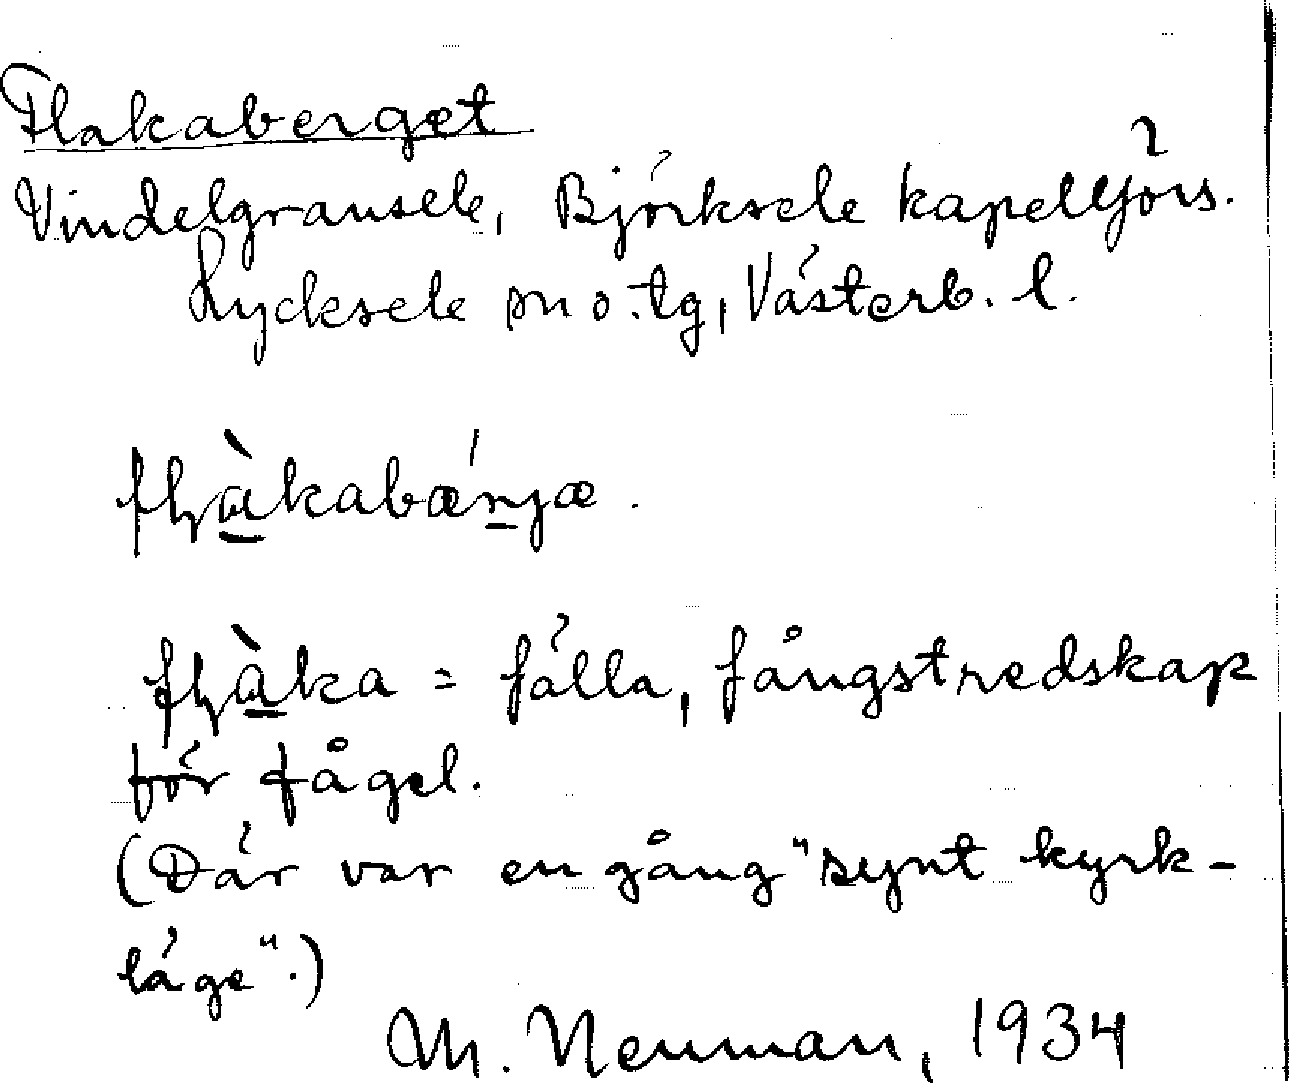 Flakaberget
Vindelgransele, Björksele kapellförs.
Lycksele sn o. tg, Västerb. l.
flàkabǽrjæ.
flàka = fälla, fångstredskap
för fågel.
(Där var en gång "synt kyrk-
läge".)
M. Neuman, 1934